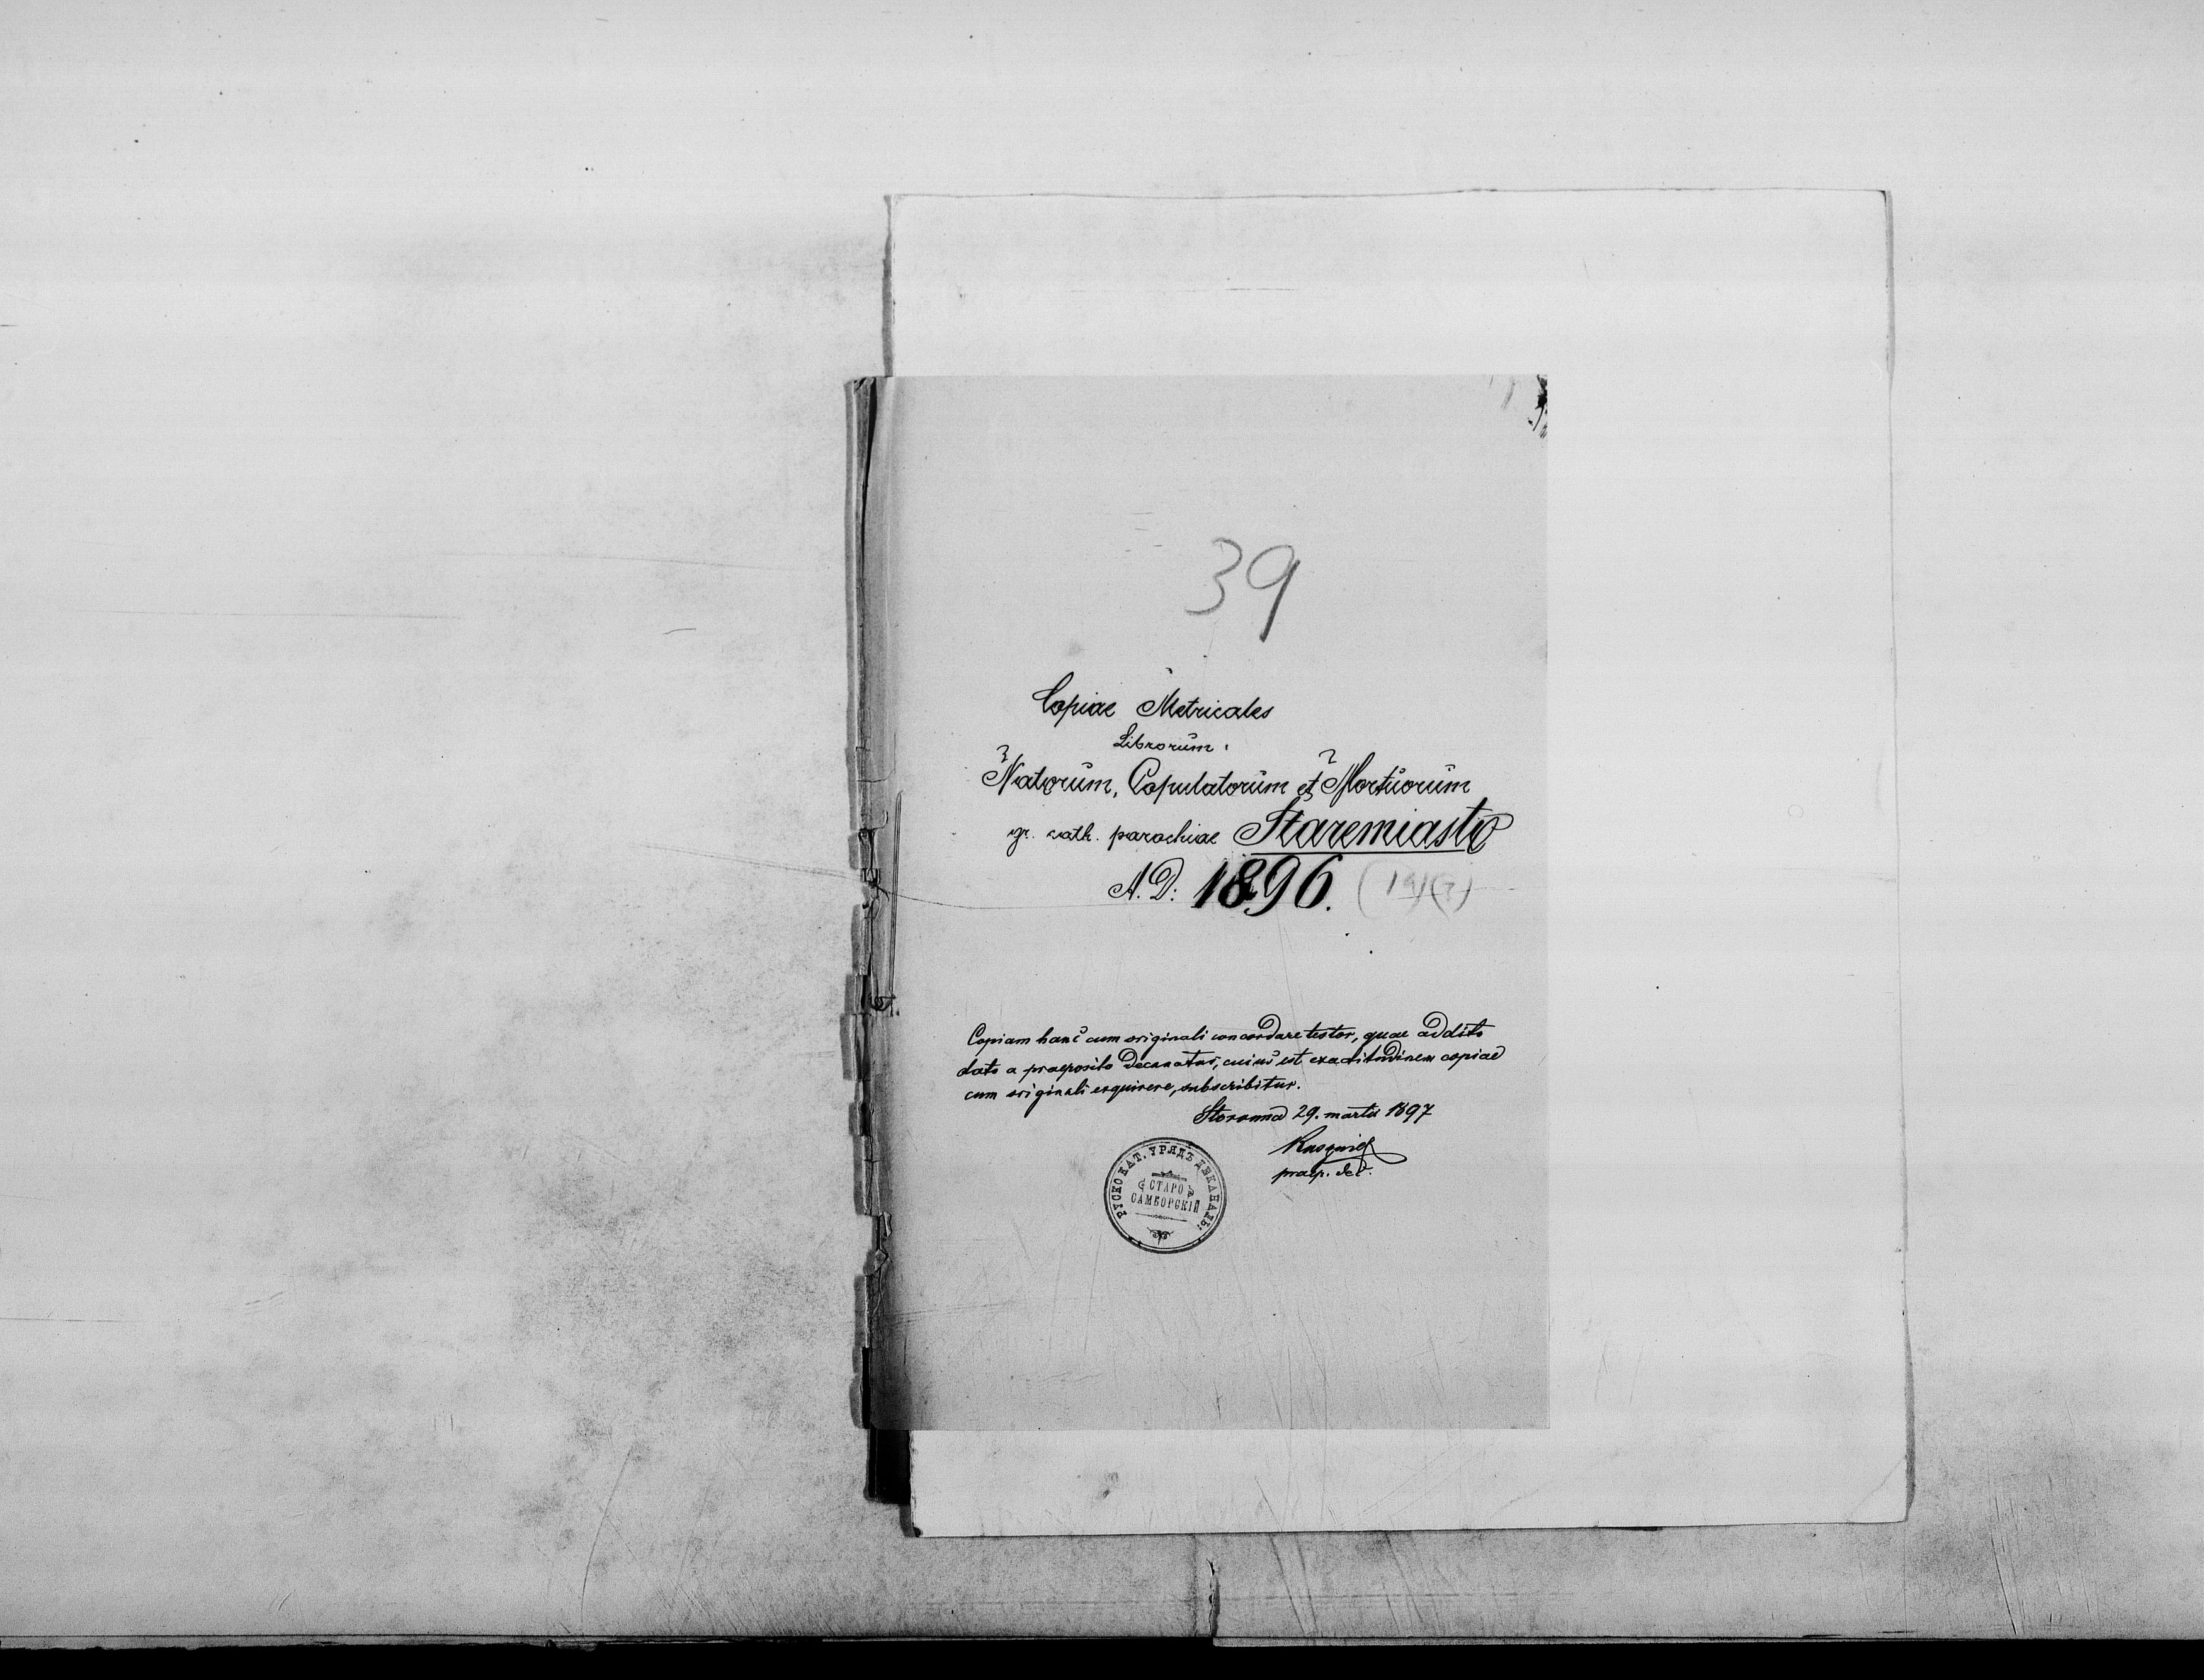 39
Copiae Metricales
Librorum
Natorum, Copulatorum et Mortuorum
gr. cath. parochiae Staremiasto
A.D: 1896.
Copiam hanc cum originali concordare testor, quae addito
dato a praeposito decanatus, cuius est exactitudinem copiae
cum originali exquirere, subscribitur.
29. martii 1897
praep. dec.
РУСКО КАТ. УРЯДЪ ДЕКАНАЛЬ:
СТАРО
САМБОРСКІЙ